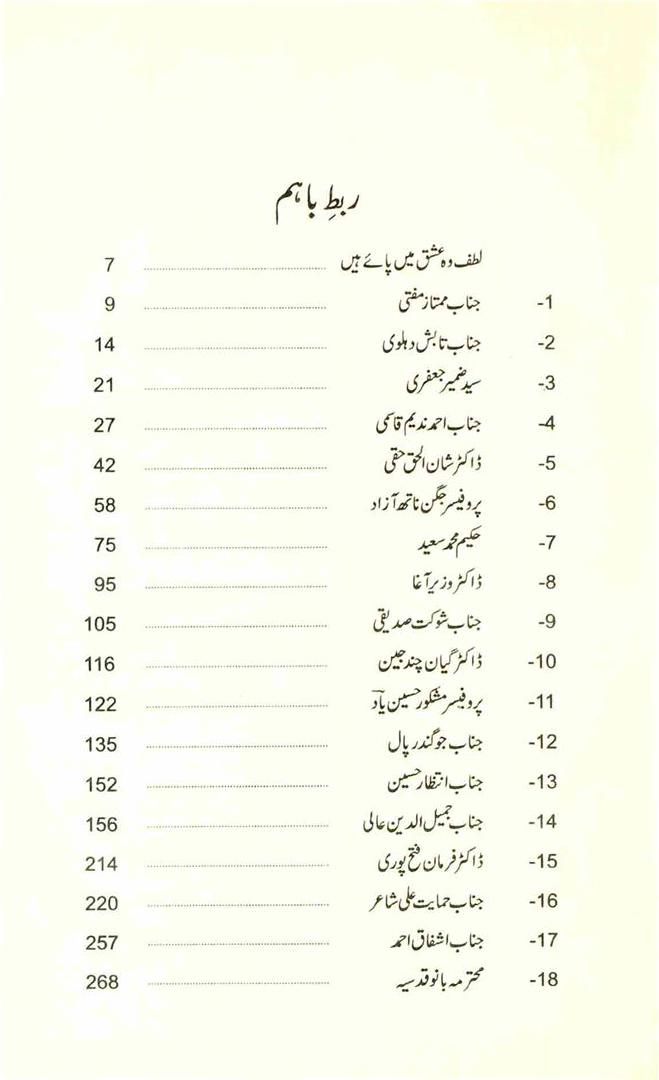 ربطِ باہم
لطف وہ عشق میں پائے ہیں ........ 7
1- جناب ممتاز مفتی ........ 9
2- جناب تابش دہلوی ........ 14
3- سید ضمیر جعفری ........ 21
4- جناب احمد ندیم قاسمی ........ 27
5- ڈاکٹر شان الحق حقی ........ 42
6- پروفیسر جگن ناتھ آزاد ........ 58
7- حکیم محمد سعید ........ 75
8- ڈاکٹر وزیر آغا ........ 95
9- جناب شوکت صدیقی ........ 105
10- ڈاکٹر گیان چند جین ........ 116
11- پروفیسر مشکور حسین یاد ........ 122
12- جناب جوگندر پال ........ 135
13- جناب انتظار حسین ........ 152
14- جناب جمیل الدین عالی ........ 156
15- ڈاکٹر فرمان فتح پوری ........ 214
16- جناب حمایت علی شاعر ........ 220
17- جناب اشفاق احمد ........ 257
18- محترمہ بانو قدسیہ ........ 268